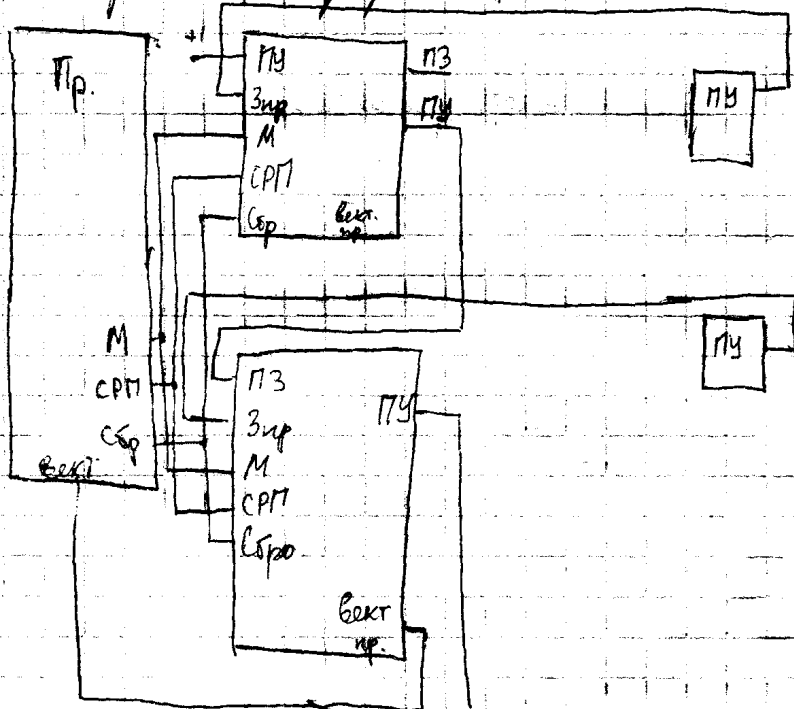 Пр.
М
СРП
Сбр
Вект
+1
ПУ
Зпр
М
СРП
Сбр
ПЗ
ПУ
вект.
пр.
ПУ
ПЗ
Зпр
М
СРП
Сбро
ПУ
Вект
пр.
ПУ